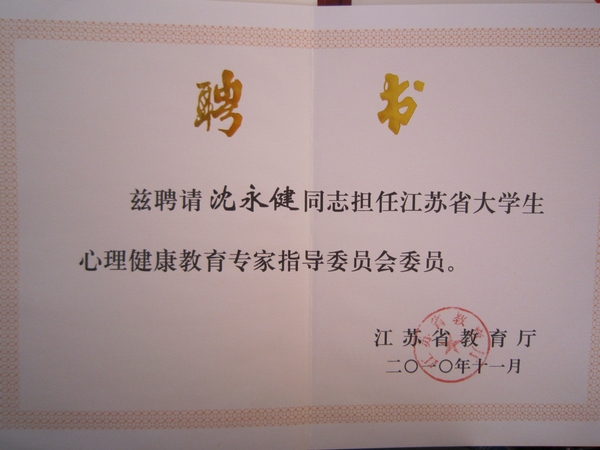 聘书
兹聘请沈永健同志担任江苏省大学生
心理健康教育专家指导委员会委员。
江苏省教育厅
二〇一〇年十一月
江苏省教育厅